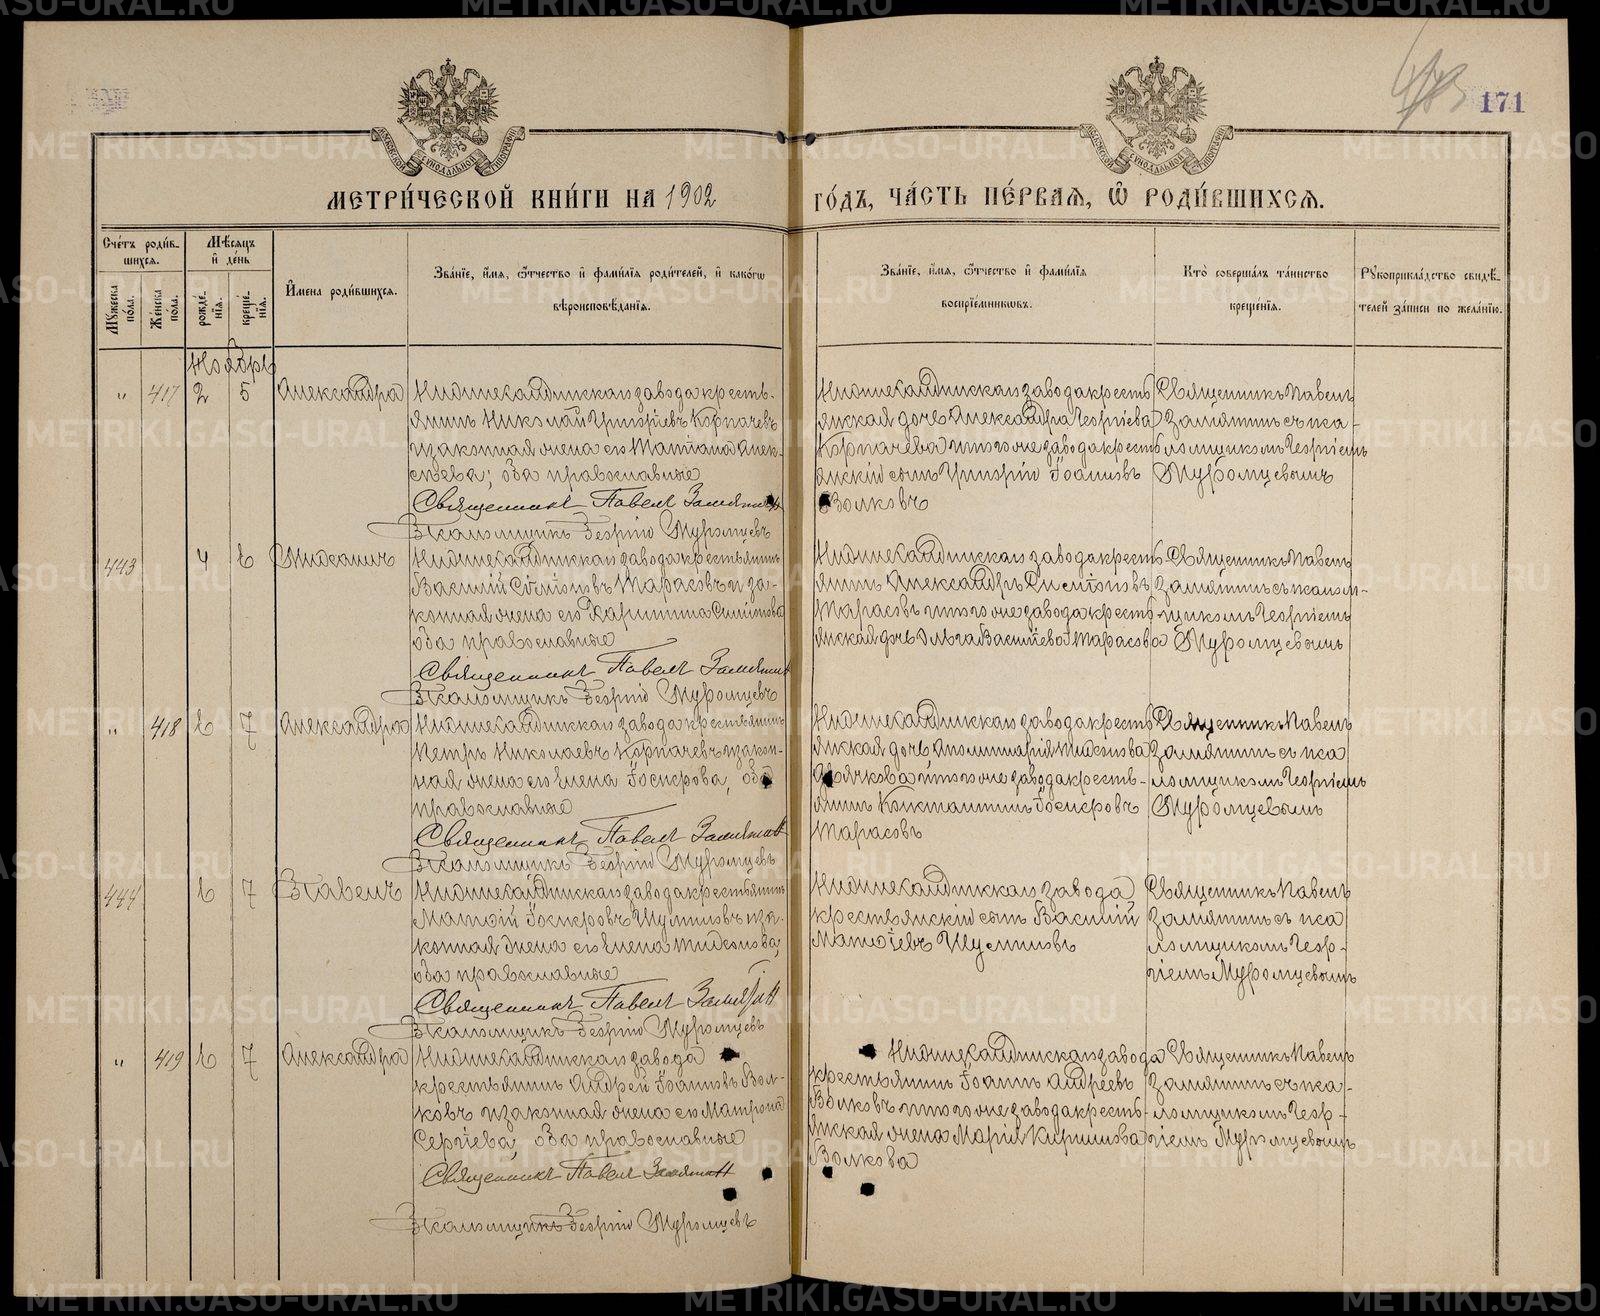 171
МЕТРИ́ЧЕСКОЙ КНИ́ГИ НА 1902
ГО́ДЪ, ЧА́СТЬ ПЕ́РВАѦ, Ѡ҆ РОДИ́ВШИХСѦ.
Сче́тъ роди́в-
шихсѧ.
Мꙋ́жеска по́ла.
Же́нска по́ла.
Мѣ́сѧцъ
и҆ де́нь
рожде́-нїѧ.
креще́-нїѧ.
И҆мена роди́вшихсѧ.
Зва́нїе, и҆́мѧ, ѻ҆́тчество и҆ фами́лїѧ роди́телей, и҆ како́гѡ
вѣроисповѣ́данїѧ.
Зва́нїе, и҆́мѧ, ѻ҆́тчество и҆ фами́лїѧ
воспрїе́мникѡвъ.
Кто̀ соверша́лъ та́инство
креще́нїѧ.
Рꙋкоприкла́дство свидѣ́-
телей за́писи по жела́нїю.
Ноябрь
" 417 2 5 Александра
Нижнесалдинскаго завода кресть-
янинъ Николай Григорiевъ Корпачевъ
и законная жена его Татiана Алек-
сѣева; оба православные
Священникъ Павелъ Замятин
Псаломщикъ Георгій Муромцевъ
Нижнесалдинскаго завода кресть-
янская дочь Александра Георгіева
Корпачева и того же завода кресть-
янскій сынъ Григорій Іоанновъ
Волковъ
Священникъ Павелъ
Замятинъ съ пса-
ломщикомъ Георгіемъ
Муромцевымъ
443 4 6 Михаилъ
Нижнесалдинскаго завода крестьянинъ
Василій Симіоновъ Тарасовъ и за-
конная жена его Харитина Симіонова
оба православные
Священникъ Павелъ Замятин
Псаломщикъ Георгій Муромцевъ
Нижнесалдинскаго завода кресть-
янинъ Александръ Симіоновъ
Тарасовъ и того же завода кресть-
янская дочь Ольга Васильева Тарасова
Священникъ Павелъ
Замятинъ съ псалом-
щикомъ Георгіемъ
Муромцевымъ
" 418 6 7 Александра
Нижнесалдинскаго завода крестьянинъ
Петръ Николаевъ Корпачевъ и закон-
ная жена его Елена Іосифова, оба
православные
Священникъ Павелъ Замятин
Псаломщикъ Георгій Муромцевъ
Нижнесалдинскаго завода кресть-
янская дочь Аполлинарія
и того же завода кресть-
янинъ Константинъ Іосифовъ
Тарасовъ
Священникъ Павелъ
Замятинъ съ пса
ломщикомъ Георгіемъ
Муромцевымъ
444 6 7 Павелъ
Нижнесалдинскаго завода крестьянинъ
Матѳій Іосифовъ и за-
конная жена его Елена
оба православные
Священникъ Павелъ Замятин
Псаломщикъ Георгій Муромцевъ
Нижнесалдинскаго завода
крестьянскій сынъ Василій
Матѳіевъ
Священникъ Павелъ
Замятинъ съ пса
ломщикомъ Геор-
гіемъ Муромцевымъ
" 419 6 7 Александра
Нижнесалдинскаго завода
крестьянинъ Андрей Іоанновъ Вол-
ковъ и законная жена его Матрона
Сергіева, оба православные
Священникъ Павелъ Замятин
Псаломщикъ Георгій Муромцевъ
Нижнесалдинскаго завода
крестьянинъ Іоаннъ Андреевъ
Волковъ и того же завода кресть-
янская жена Марія Кириллова
Волкова
Священникъ Павелъ
Замятинъ съ пса-
ломщикомъ Геор-
гіемъ Муромцевымъ
METRIKI.GASO-URAL.RU